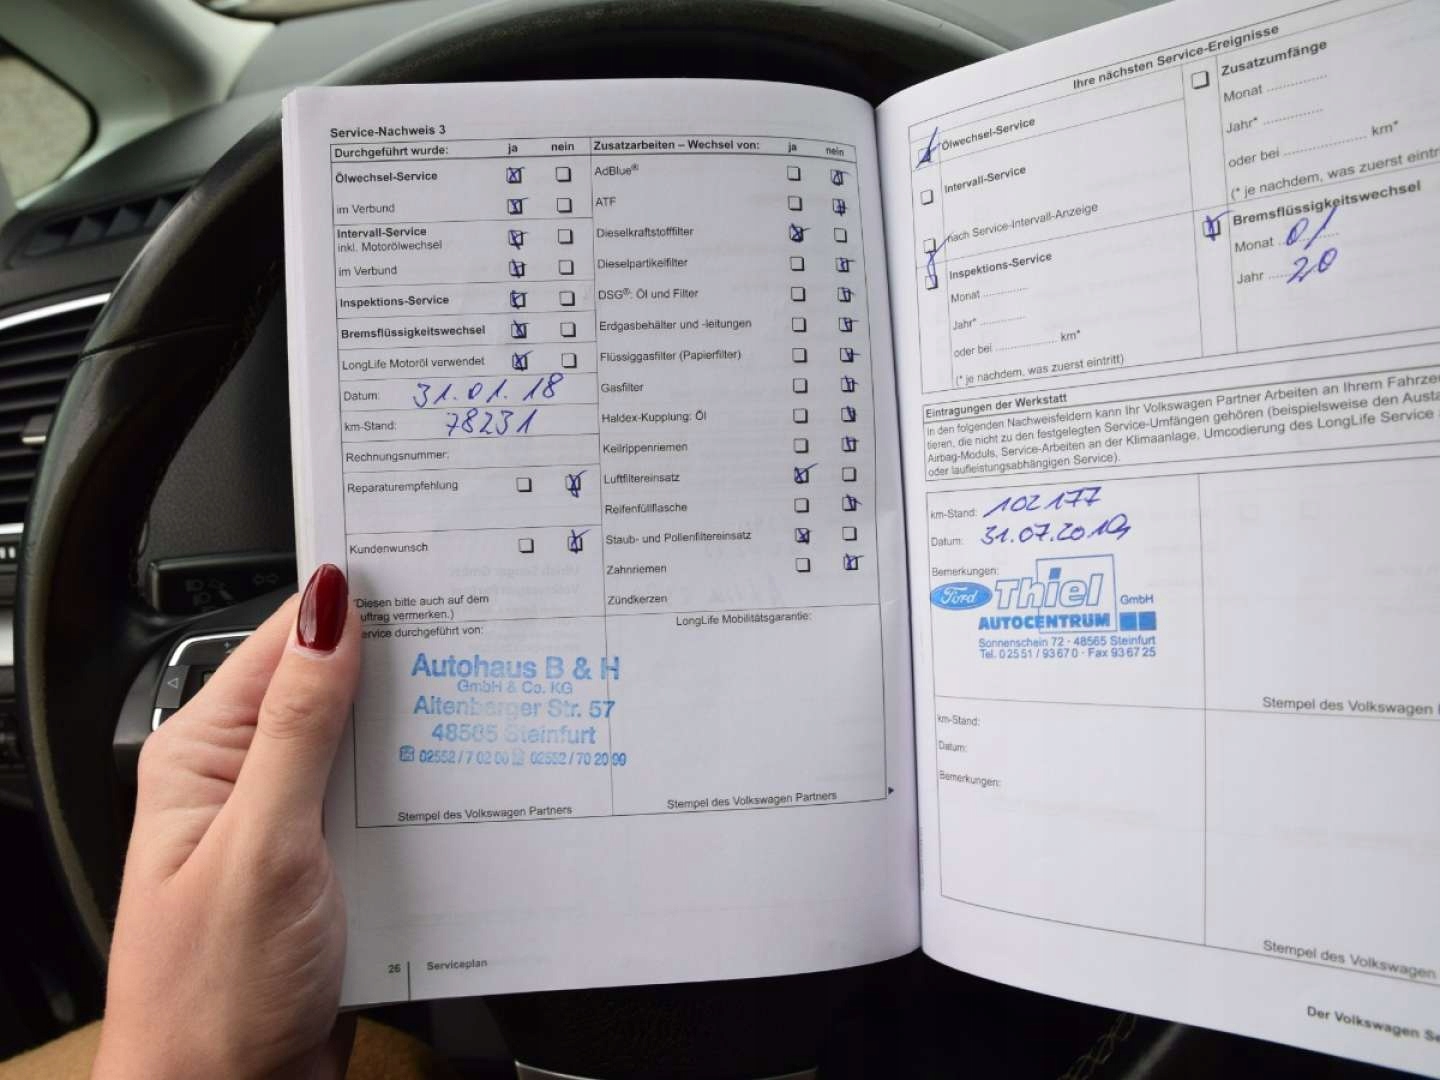 Service-Nachweis 3
Durchgeführt wurde: ja nein
Ölwechsel-Service
im Verbund
Intervall-Service
inkl. Motorölwechsel
im Verbund
Inspektions-Service
Bremsflüssigkeitswechsel
LongLife Motoröl verwendet
Datum: 31.01.18
km-Stand: 78231
Rechnungsnummer:
Reparaturempfehlung
Kundenwunsch
(Diesen bitte auch auf dem
uftrag vermerken.)
ervice durchgeführt von:
Autohaus B & H
GmbH & Co. KG
Altenberger Str. 57
48565 Steinfurt
02552 / 7 02 00 02552 / 70 20 99
Stempel des Volkswagen Partners
Zusatzarbeiten – Wechsel von: ja nein
AdBlue®
ATF
Dieselkraftstofffilter
Dieselpartikelfilter
DSG®: Öl und Filter
Erdgasbehälter und -leitungen
Flüssiggasfilter (Papierfilter)
Gasfilter
Haldex-Kupplung: Öl
Keilrippenriemen
Luftfiltereinsatz
Reifenfüllflasche
Staub- und Pollenfiltereinsatz
Zahnriemen
Zündkerzen
LongLife Mobilitätsgarantie:
Stempel des Volkswagen Partners
26 Serviceplan
Ihre nächsten Service-Ereignisse
Ölwechsel-Service
Intervall-Service
nach Service-Intervall-Anzeige
Inspektions-Service
Monat ..............
Jahr* ..............
oder bei .................... km*
(* je nachdem, was zuerst eintritt)
Zusatzumfänge
Monat ..............
Jahr* ..............
oder bei .................... km*
(* je nachdem, was zuerst eintrit
Bremsflüssigkeitswechsel
Monat 01
Jahr 20
Eintragungen der Werkstatt
In den folgenden Nachweisfeldern kann Ihr Volkswagen Partner Arbeiten an Ihrem Fahrze
tieren, die nicht zu den festgelegten Service-Umfängen gehören (beispielsweise den Austa
Airbag-Moduls, Service-Arbeiten an der Klimaanlage, Umcodierung des LongLife Service
oder laufleistungsabhängigen Service).
km-Stand: 102177
Datum: 31.07.2019
Bemerkungen:
Ford Thiel GmbH
AUTOCENTRUM
Sonnenschein 72 · 48565 Steinfurt
Tel. 0 25 51 / 93 67 0 · Fax 93 67 25
Stempel des Volkswagen
km-Stand:
Datum:
Bemerkungen:
Stempel des Volkswagen
Der Volkswagen Se